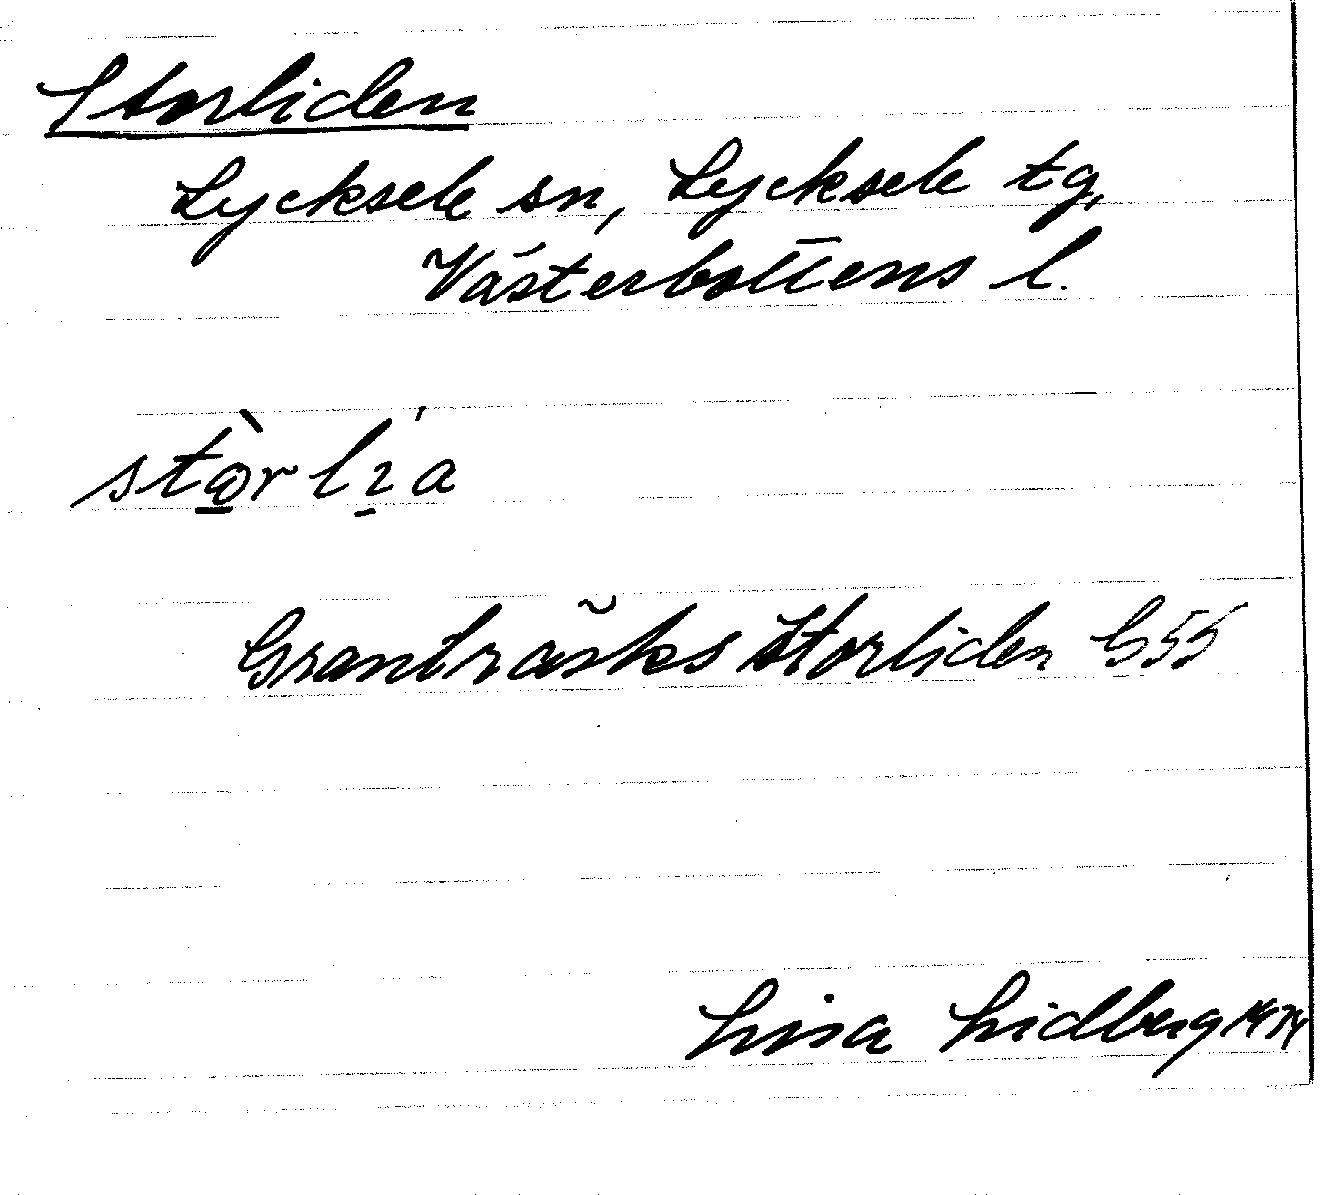 Storliden
Lycksele sn, Lycksele tg,
Västerbottens l.
Granträsks Storliden G55
Lisa Lidberg 1974